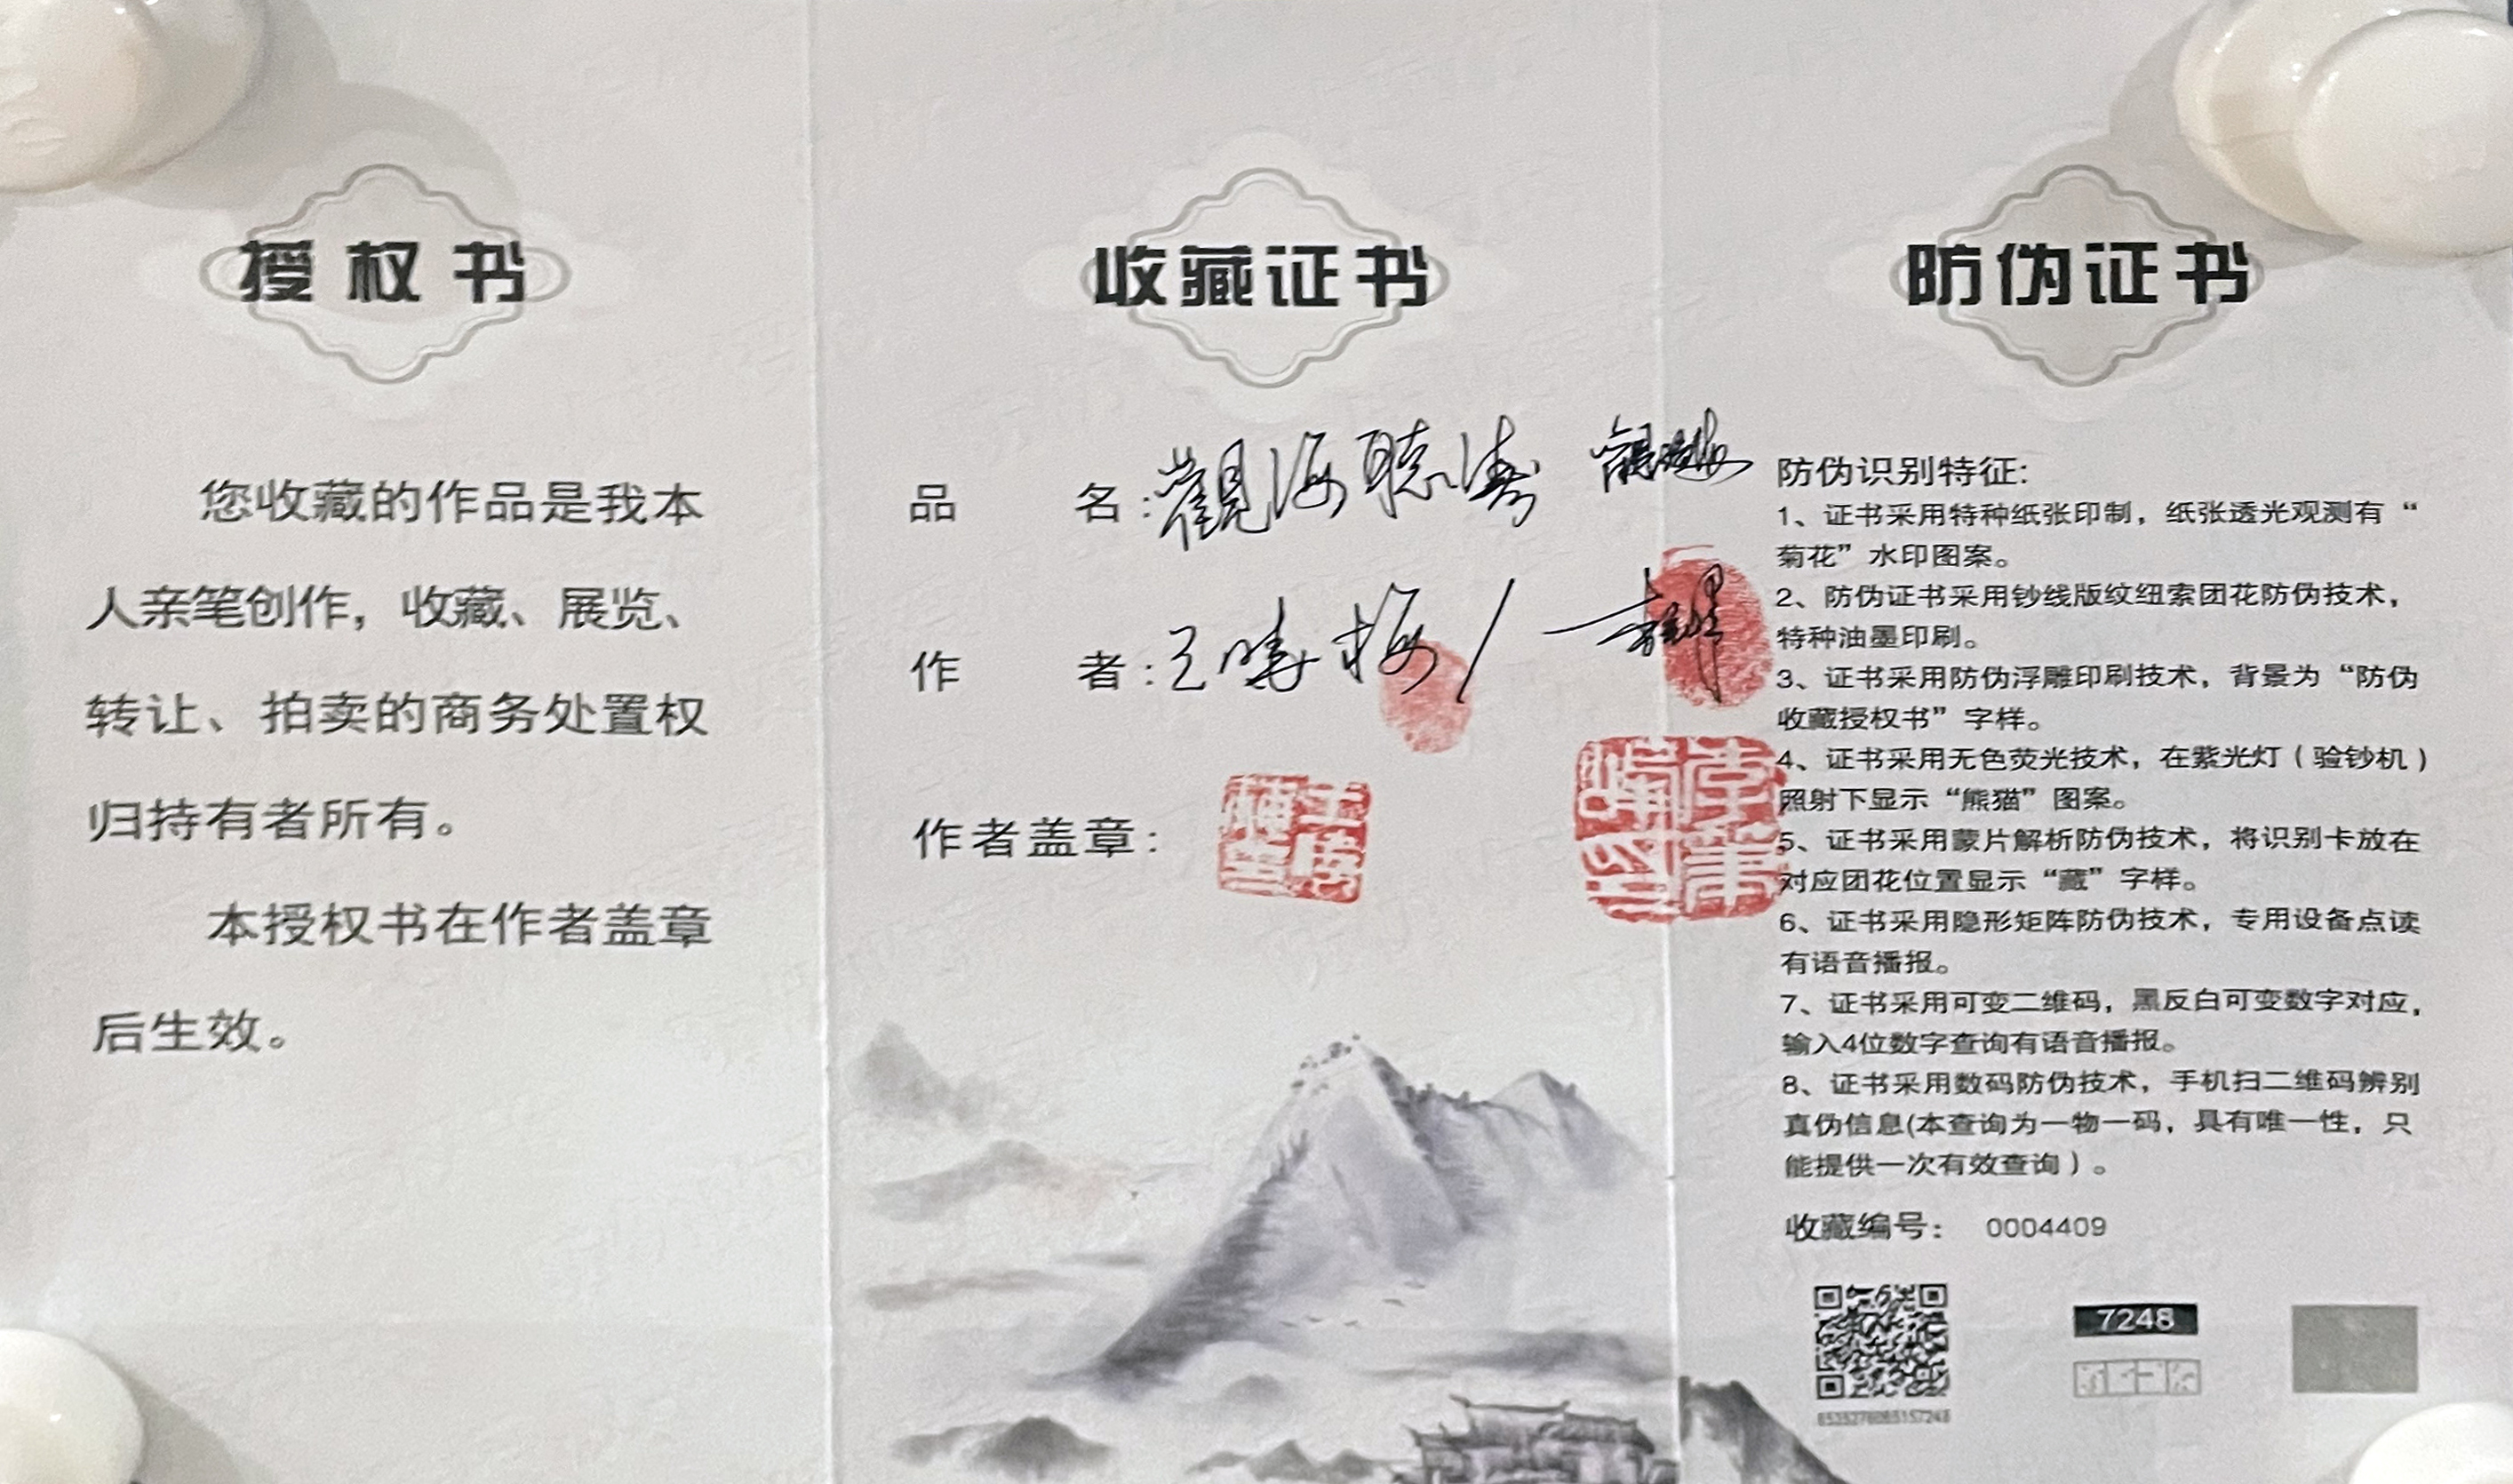 授权书
您收藏的作品是我本
人亲笔创作，收藏、展览、
转让、拍卖的商务处置权
归持有者所有。
本授权书在作者盖章
后生效。
收藏证书
品名：觀海聽濤
作者：王晓梅
作者盖章：
防伪证书
防伪识别特征：
1、证书采用特种纸张印制，纸张透光观测有“
菊花”水印图案。
2、防伪证书采用钞线版纹纽索团花防伪技术，
特种油墨印刷。
3、证书采用防伪浮雕印刷技术，背景为“防伪
收藏授权书”字样。
4、证书采用无色荧光技术，在紫光灯（验钞机）
照射下显示“熊猫”图案。
5、证书采用蒙片解析防伪技术，将识别卡放在
对应团花位置显示“藏”字样。
6、证书采用隐形矩阵防伪技术，专用设备点读
有语音播报。
7、证书采用可变二维码，黑反白可变数字对应，
输入4位数字查询有语音播报。
8、证书采用数码防伪技术，手机扫二维码辨别
真伪信息(本查询为一物一码，具有唯一性，只
能提供一次有效查询）。
收藏编号： 0004409
7248